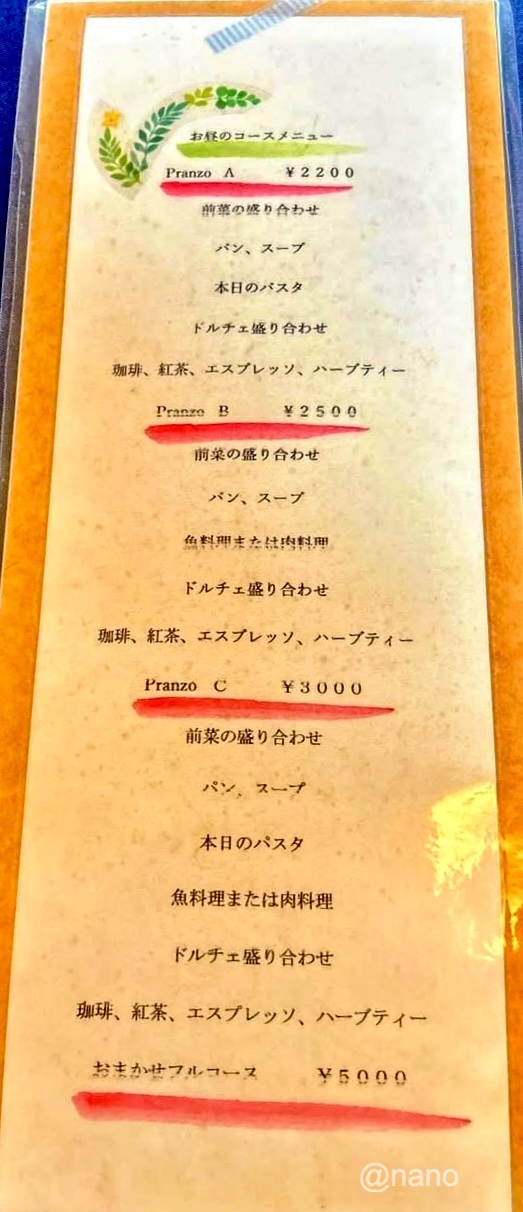 お昼のコースメニュー
Pranzo A ¥2200
前菜の盛り合わせ
パン、スープ
本日のパスタ
ドルチェ盛り合わせ
珈琲、紅茶、エスプレッソ、ハーブティー
Pranzo B ¥2500
前菜の盛り合わせ
パン、スープ
魚料理または肉料理
ドルチェ盛り合わせ
珈琲、紅茶、エスプレッソ、ハーブティー
Pranzo C ¥3000
前菜の盛り合わせ
パン、スープ
本日のパスタ
魚料理または肉料理
ドルチェ盛り合わせ
珈琲、紅茶、エスプレッソ、ハーブティー
おまかせフルコース ¥5000
@nano